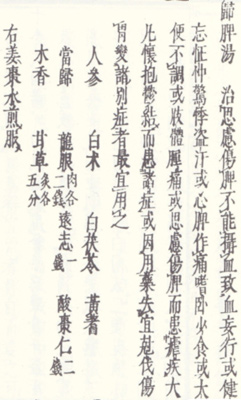 歸脾湯　治思慮傷脾不能攝血致血妄行或健
忘怔忡驚悸盜汗或心脾作痛嗜卧少食或大
便不調或肢體腫痛或思慮傷脾而患瘧疾大
凡懷抱鬱結而患諸症或因用藥失宜尅伐傷
胃變諸別症者最宜用之
人參　白术　白茯苓　黃耆
當歸　龍眼肉各二錢　遠志一錢　酸棗仁二錢
木香　甘草炙各五分
右姜棗水煎服